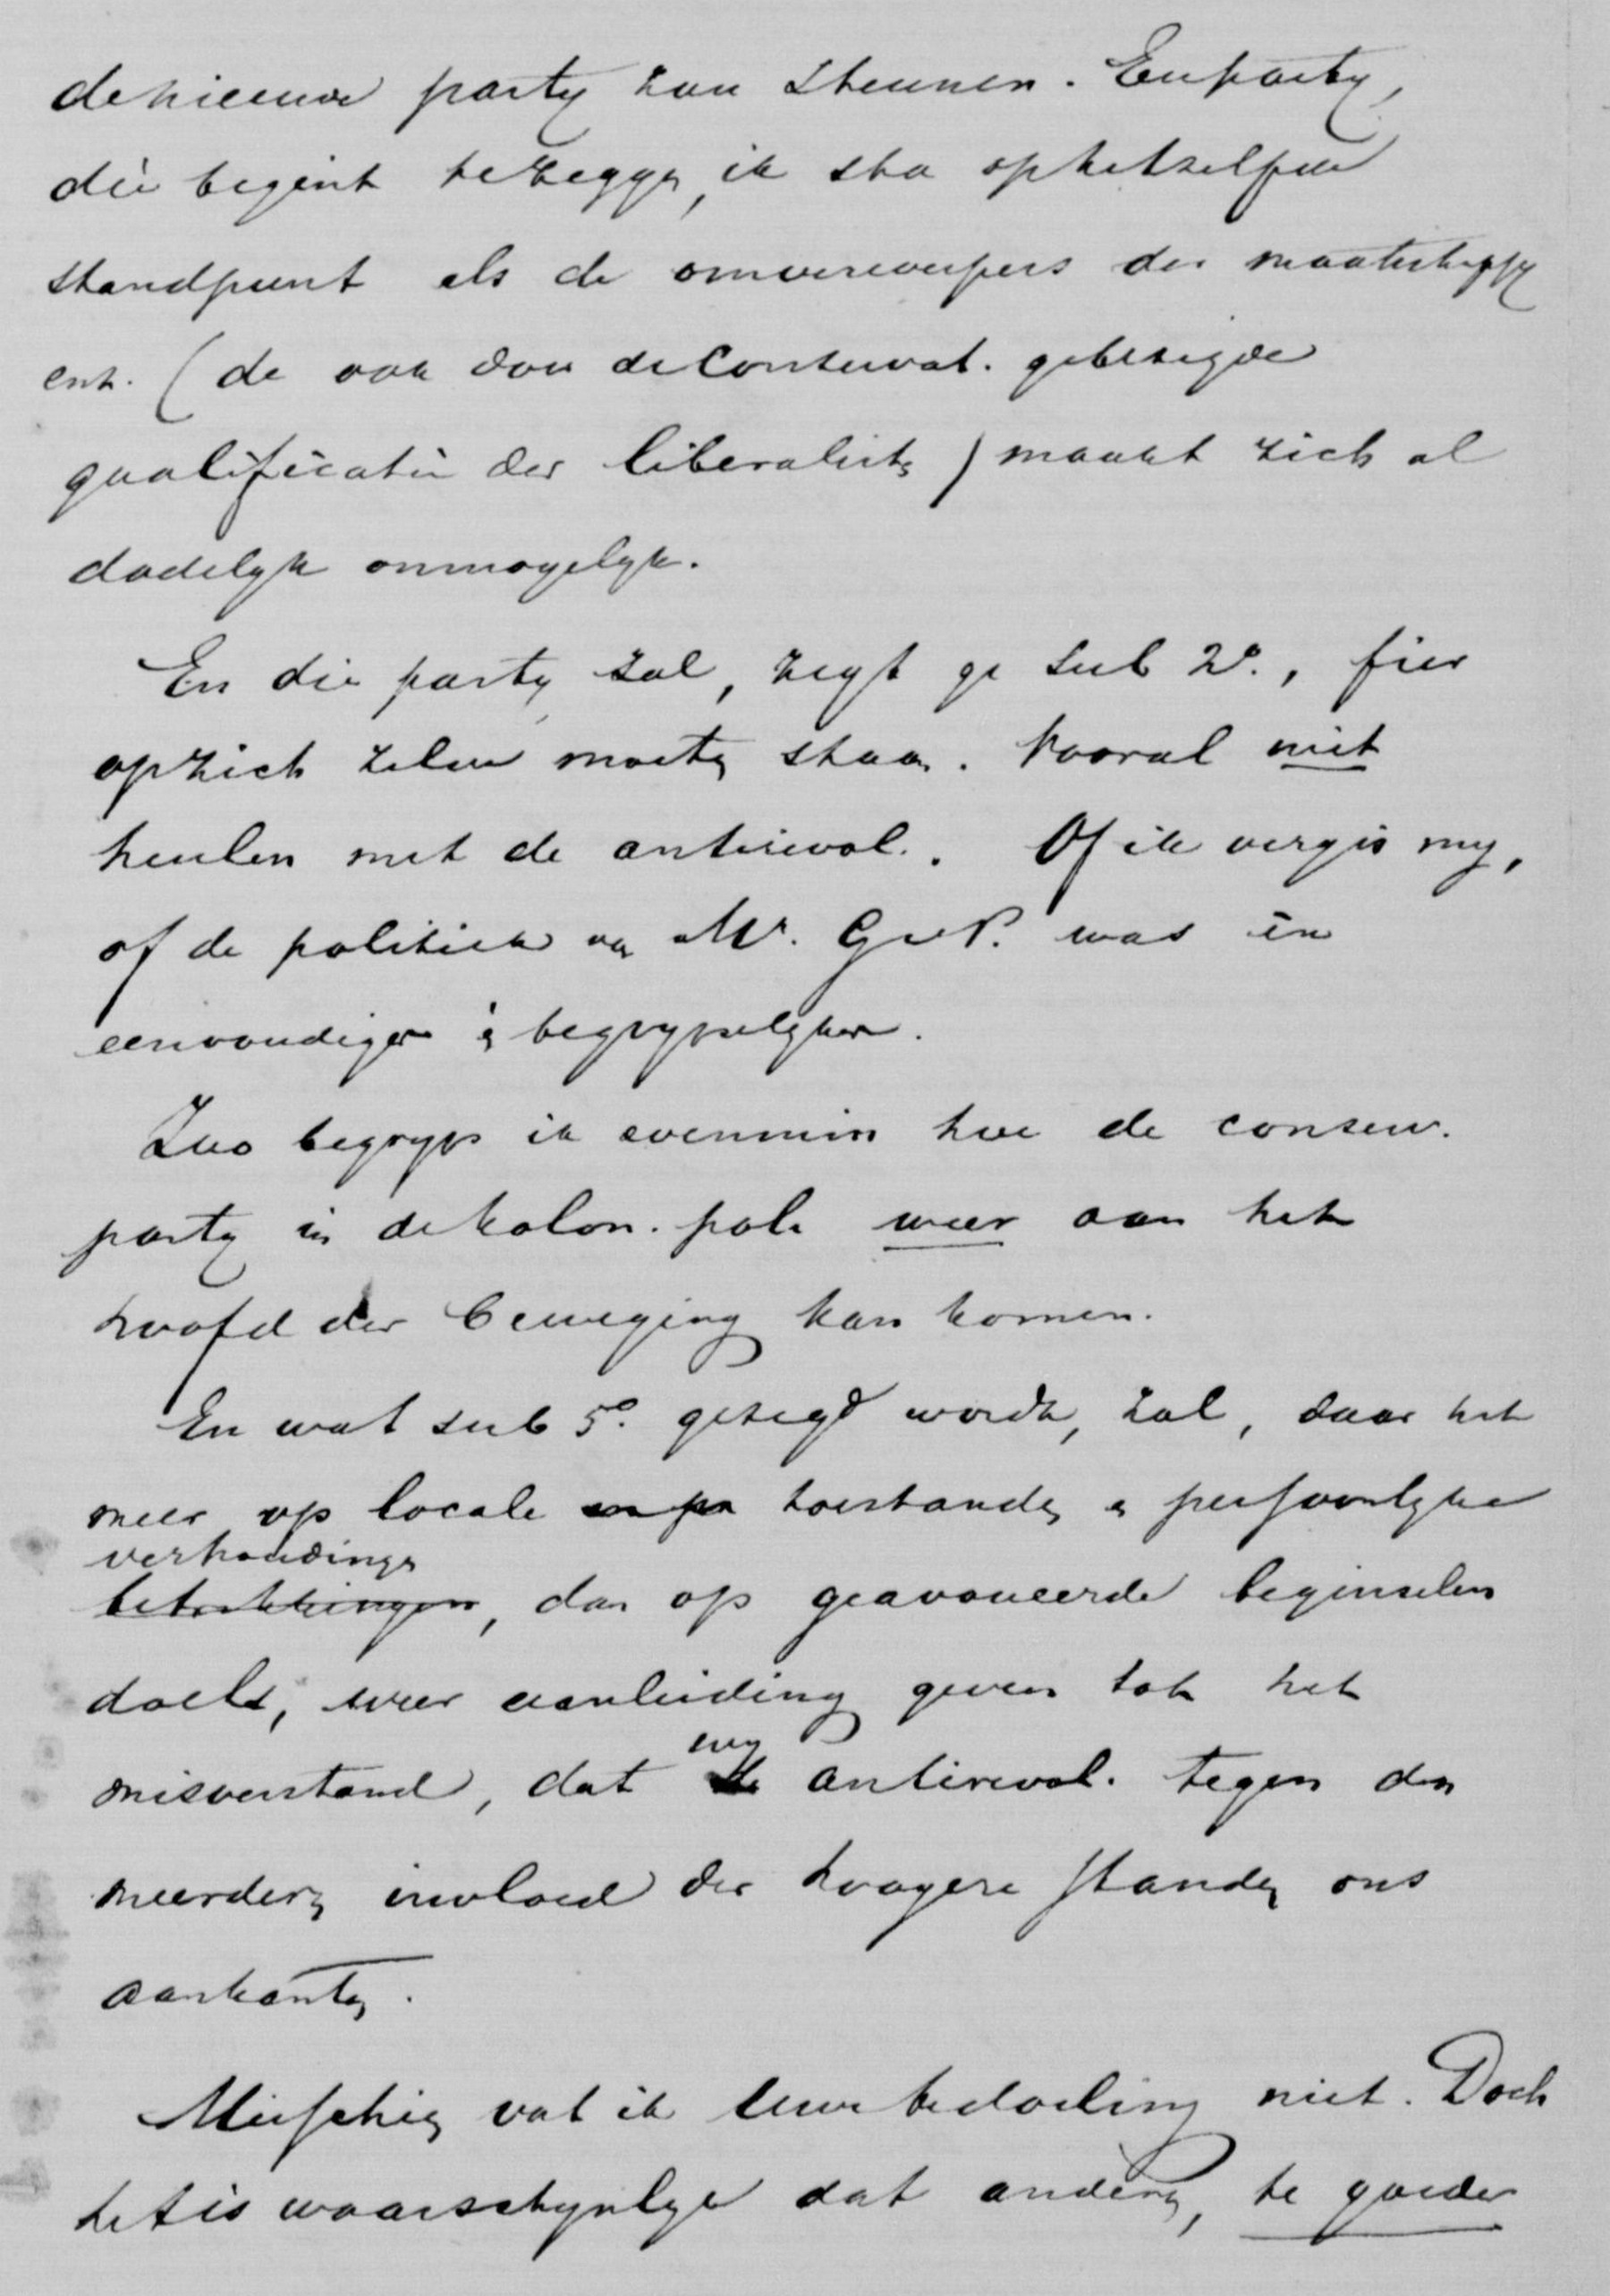 de nieuwe party kan steunen. Een party,
die begint te zeggen, ik sta op hetzelfde
standpunt als de omverwerpers der maatschappy
enz. (de ook door de Conservat. gebezigde
qualificatie der liberalisten) maakt zich al
dadelyk onmogelyk.
En die party zal, zegt ge sub 2o., fier
op zich zelve moeten staan. Vooral niet
heulen met de antirevol.. Of ik vergis my,
of de politiek van Mr. GvP. was én
eenvoudiger én begrypelyker.
Zoo begryp ik evenmin hoe de conserv.
party in de kolon. pol. weer aan het
hoofd der beweging kan komen.
En wat sub 5o. gezegd wordt, zal, daar het
meer op locale toestanden en persoonlyke
verhoudingen
betrekkingen, dan op geavoueerde beginselen
doelt, weer aanleiding geven tot het
wy
misverstand, dat de antirevol. tegen den
meerderen invloed der hoogere standen ons
aankanten.
Misschien vat ik Uwe bedoeling niet. Doch
het is waarschynlyk dat anderen, te goeder